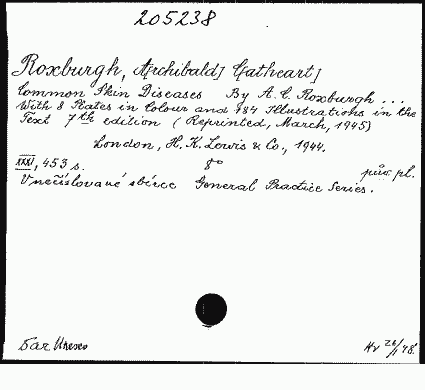 205238
Roxburgh, A[rchibald] C[athcart]
Common Skin Diseases By A. C. Roxburgh ...
With 8 Plates in Colour and 184 Illustrations in the
Text 7th edition (Reprinted, March, 1945)
London, H. K. Lewis & Co., 1944.
XXXI, 453 s. 8° pův. pl.
V nečíslované sbírce General Practice Series.
Dar Unesco